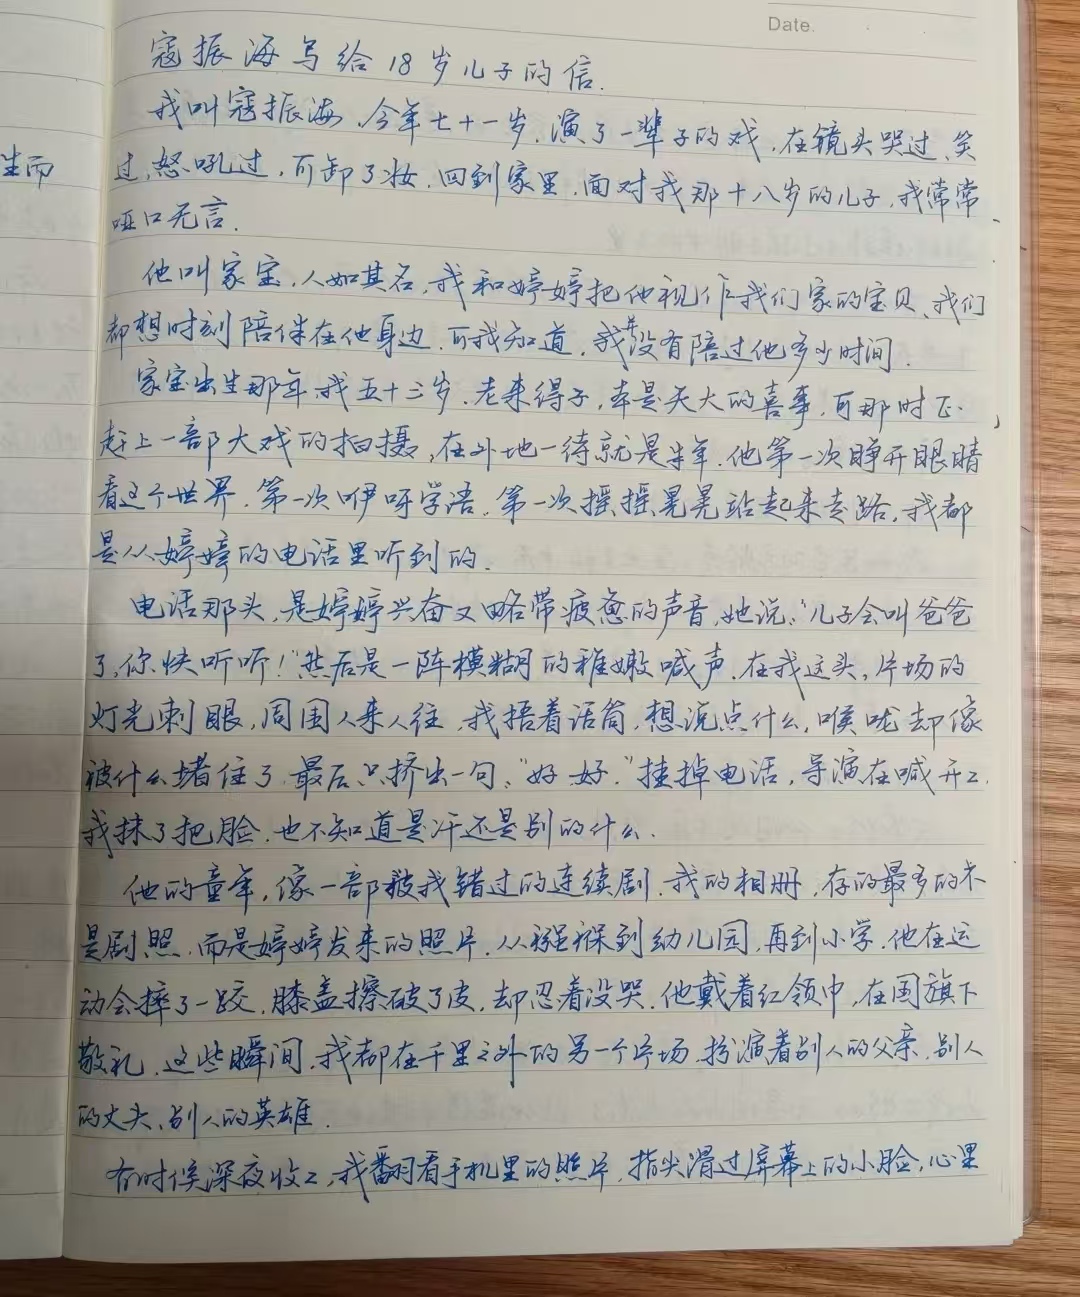 Date.
寇振海写给18岁儿子的信.
我叫寇振海,今年七十一岁,演了一辈子的戏,在镜头哭过、笑
生而
过,怒吼过,可卸了妆,回到家里,面对我那十八岁的儿子,我常常
哑口无言.
他叫家宝,人如其名,我和婷婷把他视作我们家的宝贝,我们
都想时刻陪伴在他身边,可我知道,我并没有陪过他多少时间.
家宝出生那年,我五十三岁,老来得子,本是天大的喜事,可那时正
赶上一部大戏的拍摄,在外地一待就是半年.他第一次睁开眼睛
看这个世界,第一次咿呀学语,第一次摇摇晃晃站起来走路,我都
是从婷婷的电话里听到的.
电话那头,是婷婷兴奋又略带疲惫的声音,她说:"儿子会叫爸爸
了,你快听听!"然后是一阵模糊的稚嫩喊声.在我这头,片场的
灯光刺眼,周围人来人往,我捂着话筒,想说点什么,喉咙却像
被什么堵住了.最后只挤出一句:"好,好."挂掉电话,导演在喊开工.
我抹了把脸,也不知道是汗还是别的什么.
他的童年,像一部被我错过的连续剧.我的相册,存的最多的不
是剧照,而是婷婷发来的照片.从襁褓到幼儿园,再到小学.他在运
动会摔了一跤,膝盖擦破了皮,却忍着没哭.他戴着红领巾,在国旗下
敬礼.这些瞬间,我都在千里之外的另一个片场,扮演着别人的父亲、别人
的丈夫、别人的英雄.
有时候深夜收工,我翻看手机里的照片,指尖滑过屏幕上的小脸,心里